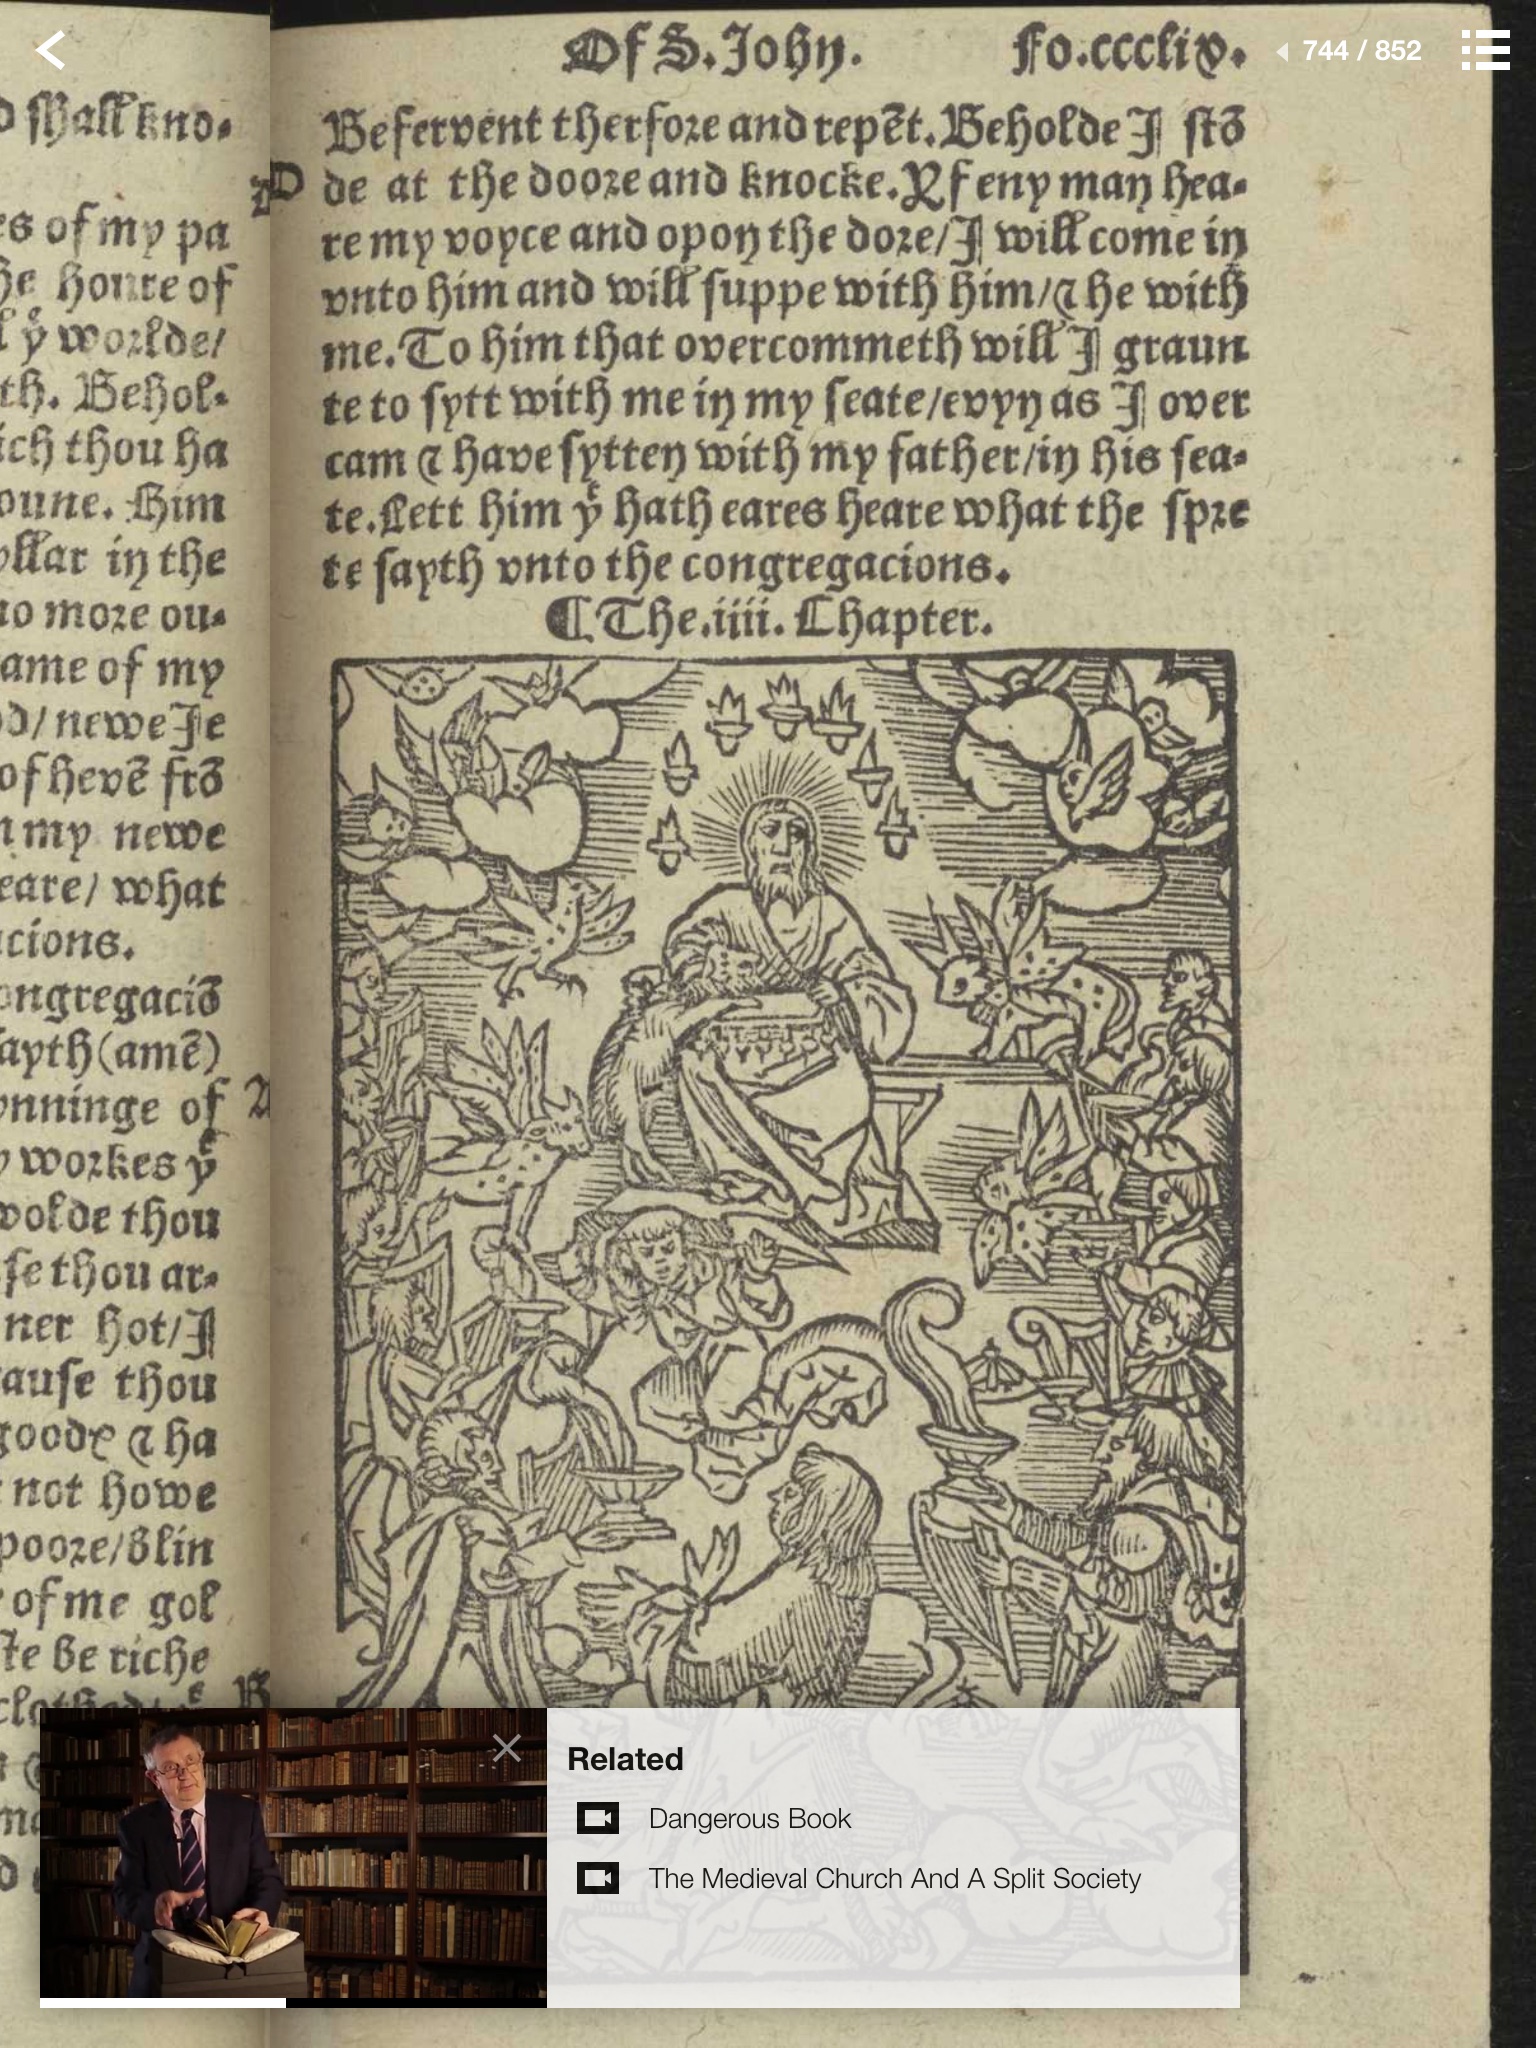 Of S. John. Fo.cccliv.
744 / 852
Be fervent therfore and repẽt. Beholde I stõ
de at the doore and knocke. Yf eny man hea-
re my voyce and opon the dore/ I will come in
vnto him and will suppe with him/ & he with
me. To him that overcommeth will I graun
te to sytt with me in my seate/ evyn as I over
cam & have sytten with my father/ in his sea-
te. Lett him yͤ hath eares heare what the spre
te sayth vnto the congregacions.
¶ The .iiii. Chapter.
shall kno-
es of my pa
houre of
yͤ worlde/
th. Behol-
ich thou ha
oune. Him
ollar in the
no more ou-
ame of my
od/ newe Je
of hevẽ frõ
my newe
eare/ what
acions.
ongregaciõ
sayth (amẽ)
ynninge of
workes yͤ
wolde thou
se thou ar-
ner hot/ I
ause thou
goodꝭ & ha
not howe
poore/ blin
of me gol
te be riche
D
A
B
Related
Dangerous Book
The Medieval Church And A Split Society